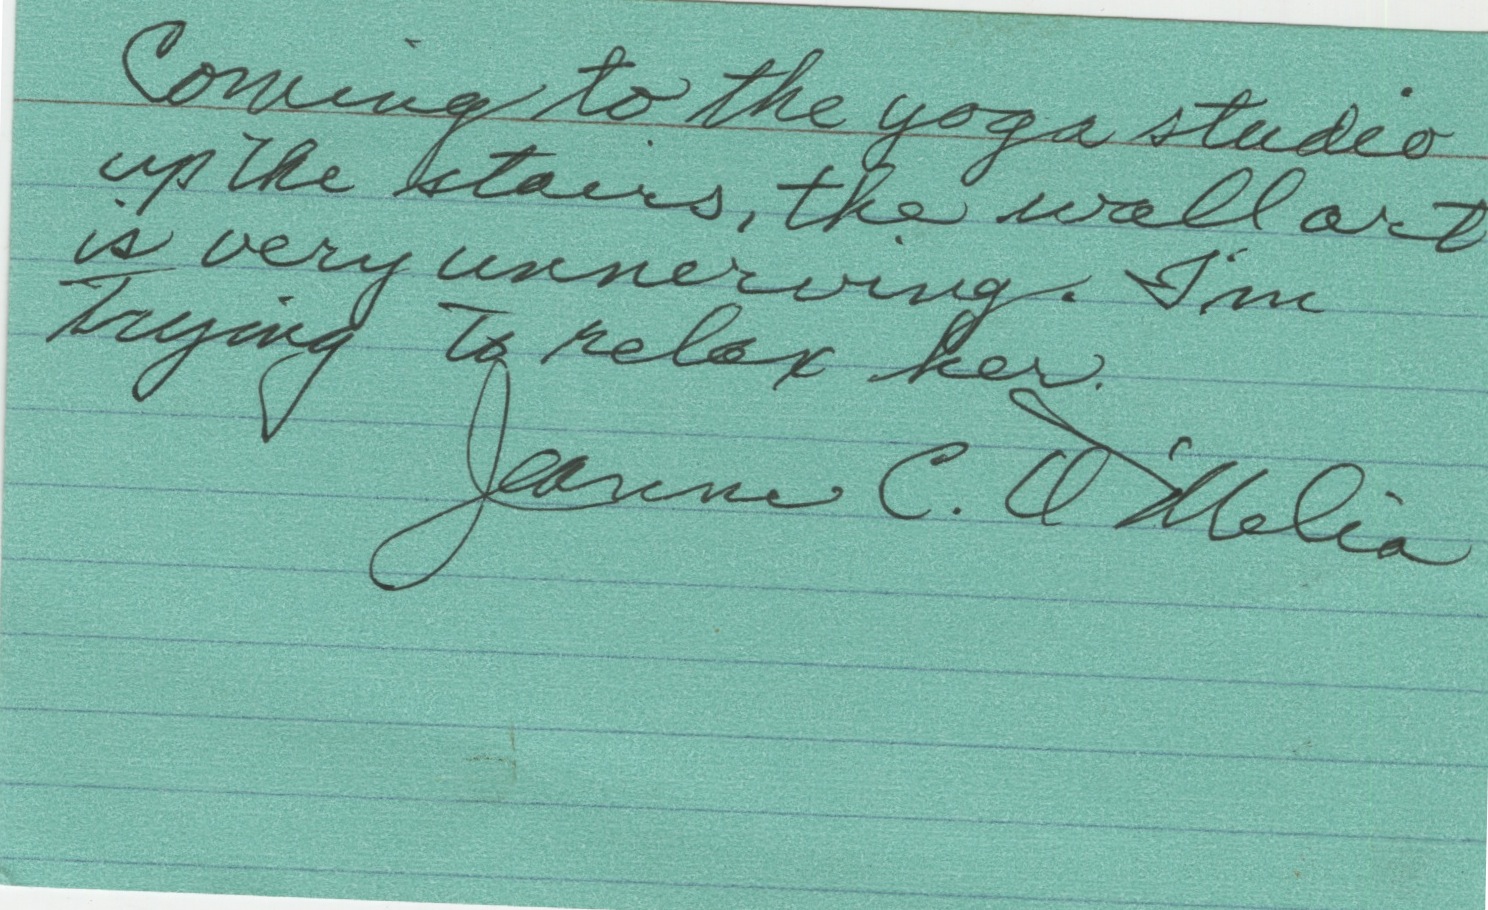 Coming to the yoga studio
up the stairs, the wall art
is very unnerving. I'm
Trying To relax her.
Jeanne C. O'Melia